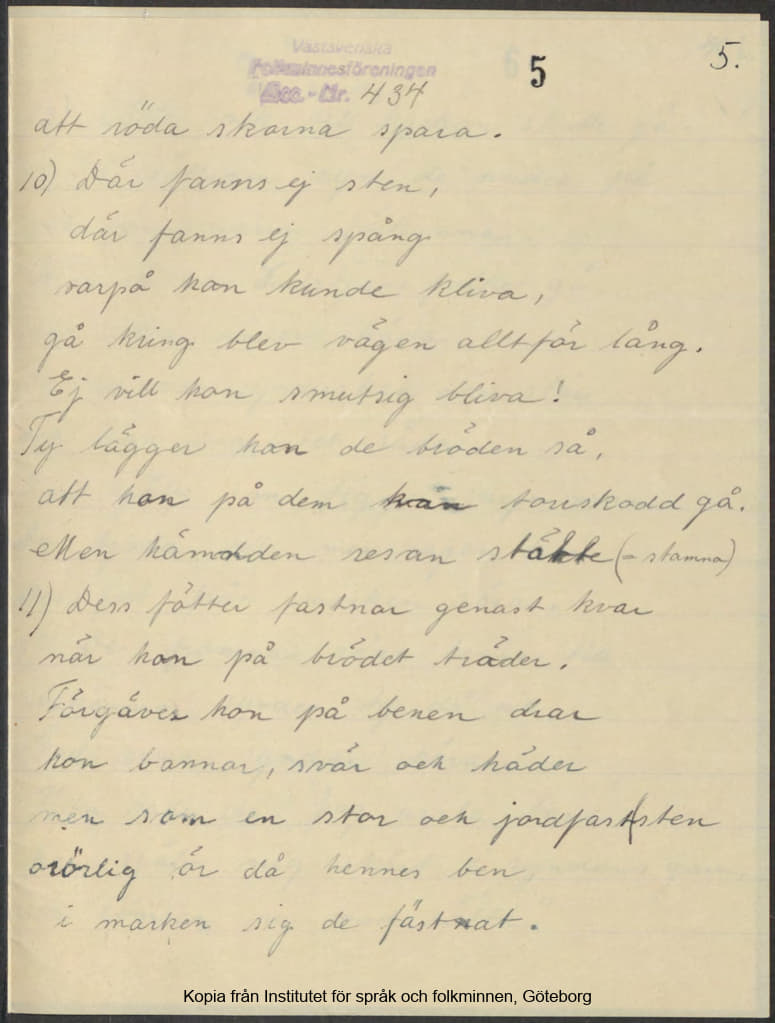 Västsvenska
Folkminnesföreningen
Acc.-Nr. 434
5
5.
att röda skorna spara.
10) Där fanns ej sten,
där fanns ej spång
varpå hon kunde kliva,
gå kring blev vägen allt för lång.
Ej vill hon smutsig bliva!
Ty lägger hon de bröden så,
att hon på dem kan torrskodd gå.
Men hämnden resan stäkte (= stamna)
11) Dess fötter fastnar genast kvar
när hon på brödet träder.
Förgäves hon på benen drar
hon bannar, svär och häder
men som en stor och jordfast sten
orörlig är då hennes ben
i marken sig de fästnat.
Kopia från Institutet för språk och folkminnen, Göteborg